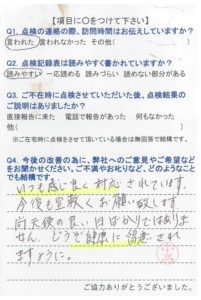 【項目に〇をつけて下さい】
Q1. 点検の連絡の際、訪問時間はお伝えしていますか?
言われた 言われなかった その他( )
Q2. 点検記録表は読みやすく書かれていますか?
読みやすい 一応読める 読みづらい 読めない部分がある
Q3. ご不在時に点検させていただいた後、点検結果の
ご説明はありましたか?
直接報告に来た 電話で報告があった 何もなかった
他( )
※ご在宅時に点検をさせて頂いている場合は無回答で結構です。
Q4. 今後の改善の為に、弊社へのご意見やご希望など
をお聞かせください。ご不満やお叱りなど、どのようなこと
でも結構です。
いつも感じ良く対応されています。
今後も宜敷くお願い致します
向天候の良い日ばかりではありま
せん、どうぞ健康に留意され
ますように。
ご協力ありがとうございました。